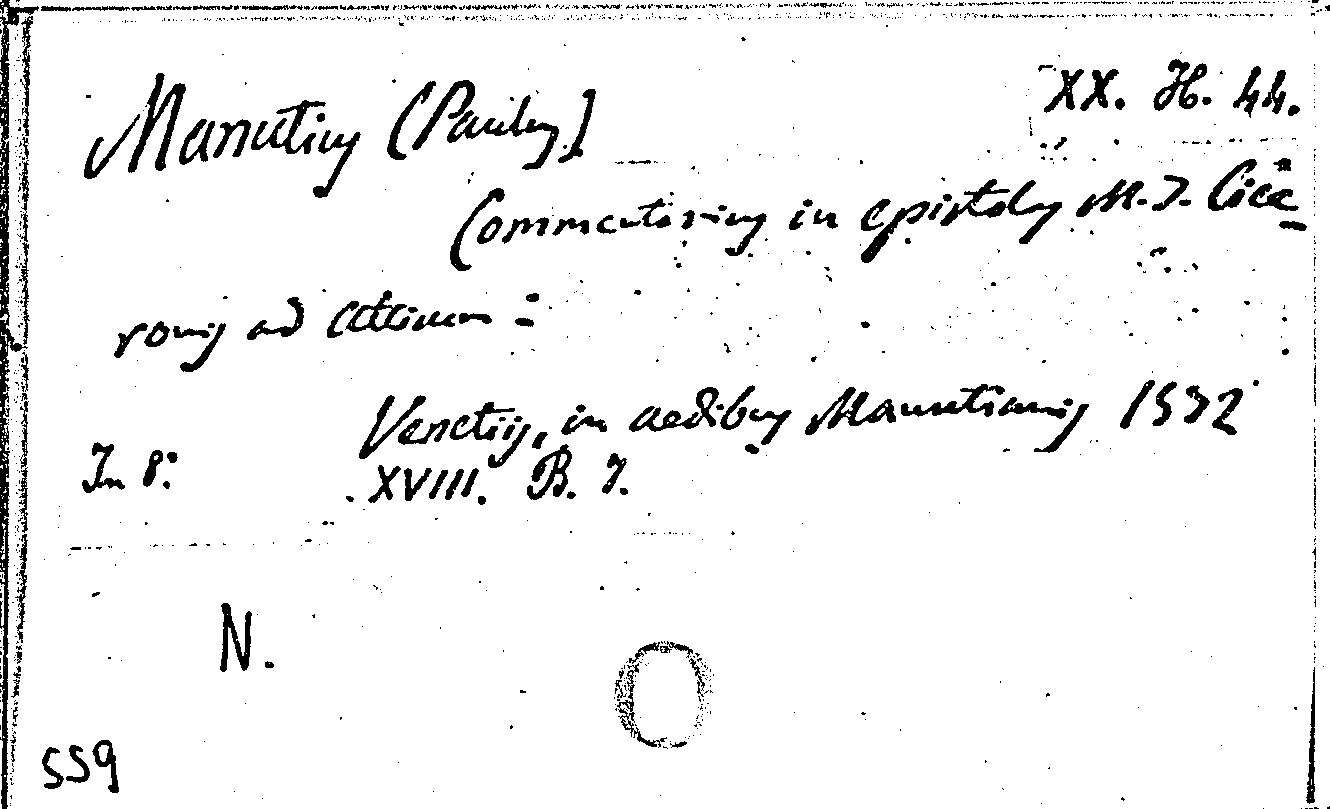 Manutius (Paulus) XX. H. 44.
Commentarius in epistolas M. T. Cice-
ronis ad Atticum:
Venetiis, in aedibus Manutianis 1572
In 8:
XVIII. B. 7.
N.
559